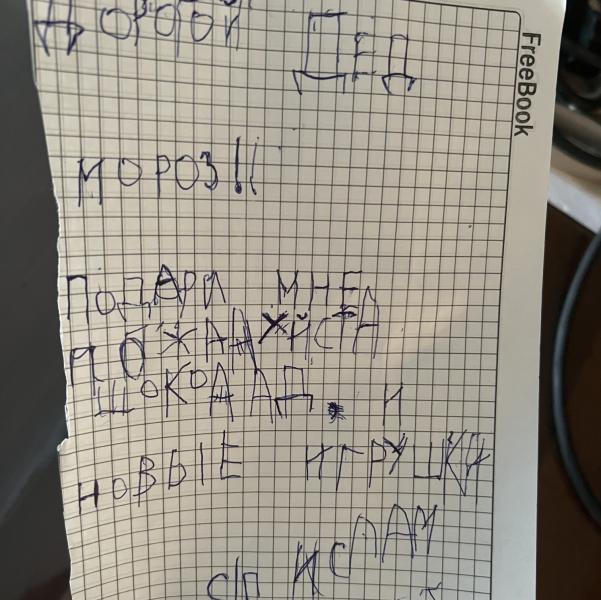 ДОРОГОЙ ДЕД
FreeBook
МОРОЗ!!
ПОДАРИ МНЕ
ШОКОЛАД. И
НОВЫЕ ИГРУШКИ
ИСЛАМ